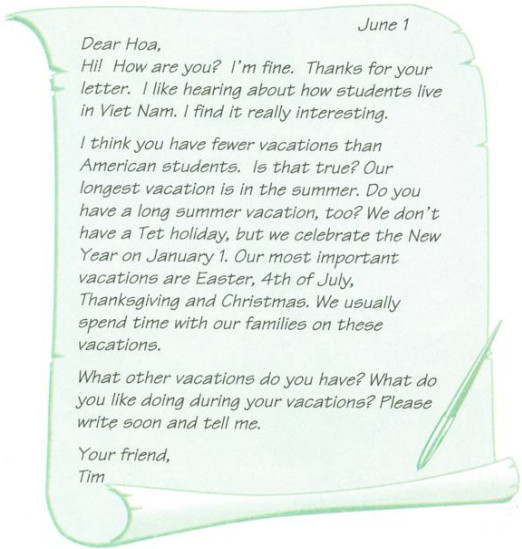 June 1
Dear Hoa,
Hi! How are you? I'm fine. Thanks for your
letter. I like hearing about how students live
in Viet Nam. I find it really interesting.
I think you have fewer vacations than
American students. Is that true? Our
longest vacation is in the summer. Do you
have a long summer vacation, too? We don't
have a Tet holiday, but we celebrate the New
Year on January 1. Our most important
vacations are Easter, 4th of July,
Thanksgiving and Christmas. We usually
spend time with our families on these
vacations.
What other vacations do you have? What do
you like doing during your vacations? Please
write soon and tell me.
Your friend,
Tim